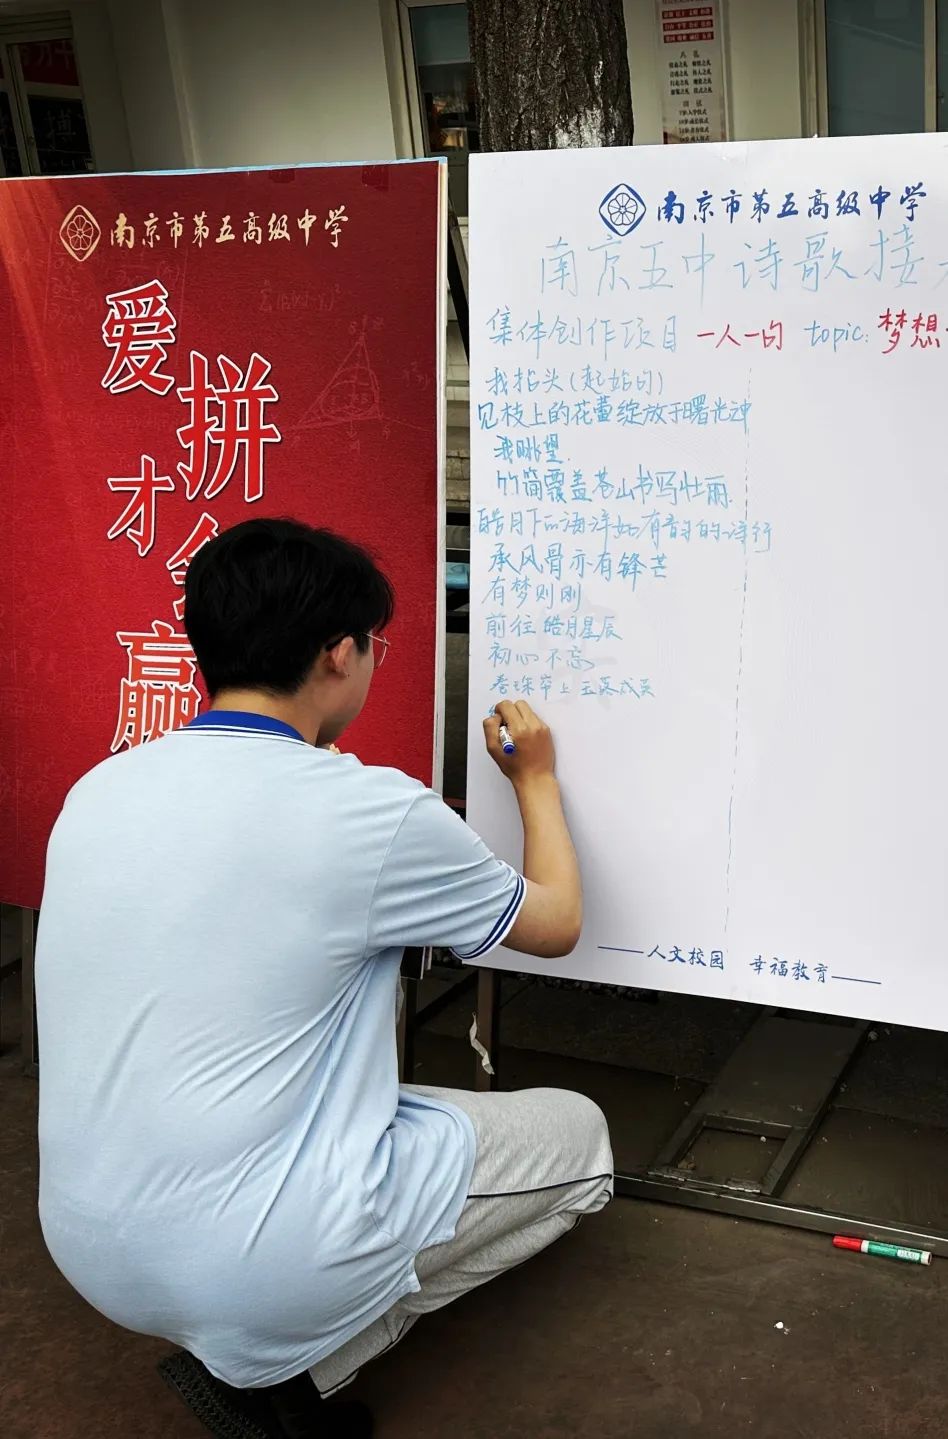 南京市第五高级中学
爱
拼
才
赢
南京市第五高级中学
南京五中诗歌接
集体创作项目 一人一句 topic: 梦想
我抬头(起始句)
见枝上的花蕾绽放于曙光中
我眺望.
竹简覆盖苍山书写壮丽.
皓月下的海洋如有韵的诗行
承风骨亦有锋芒
有梦则刚
前往皓月星辰
初心不忘
卷珠帘上玉落成
人文校园 幸福教育